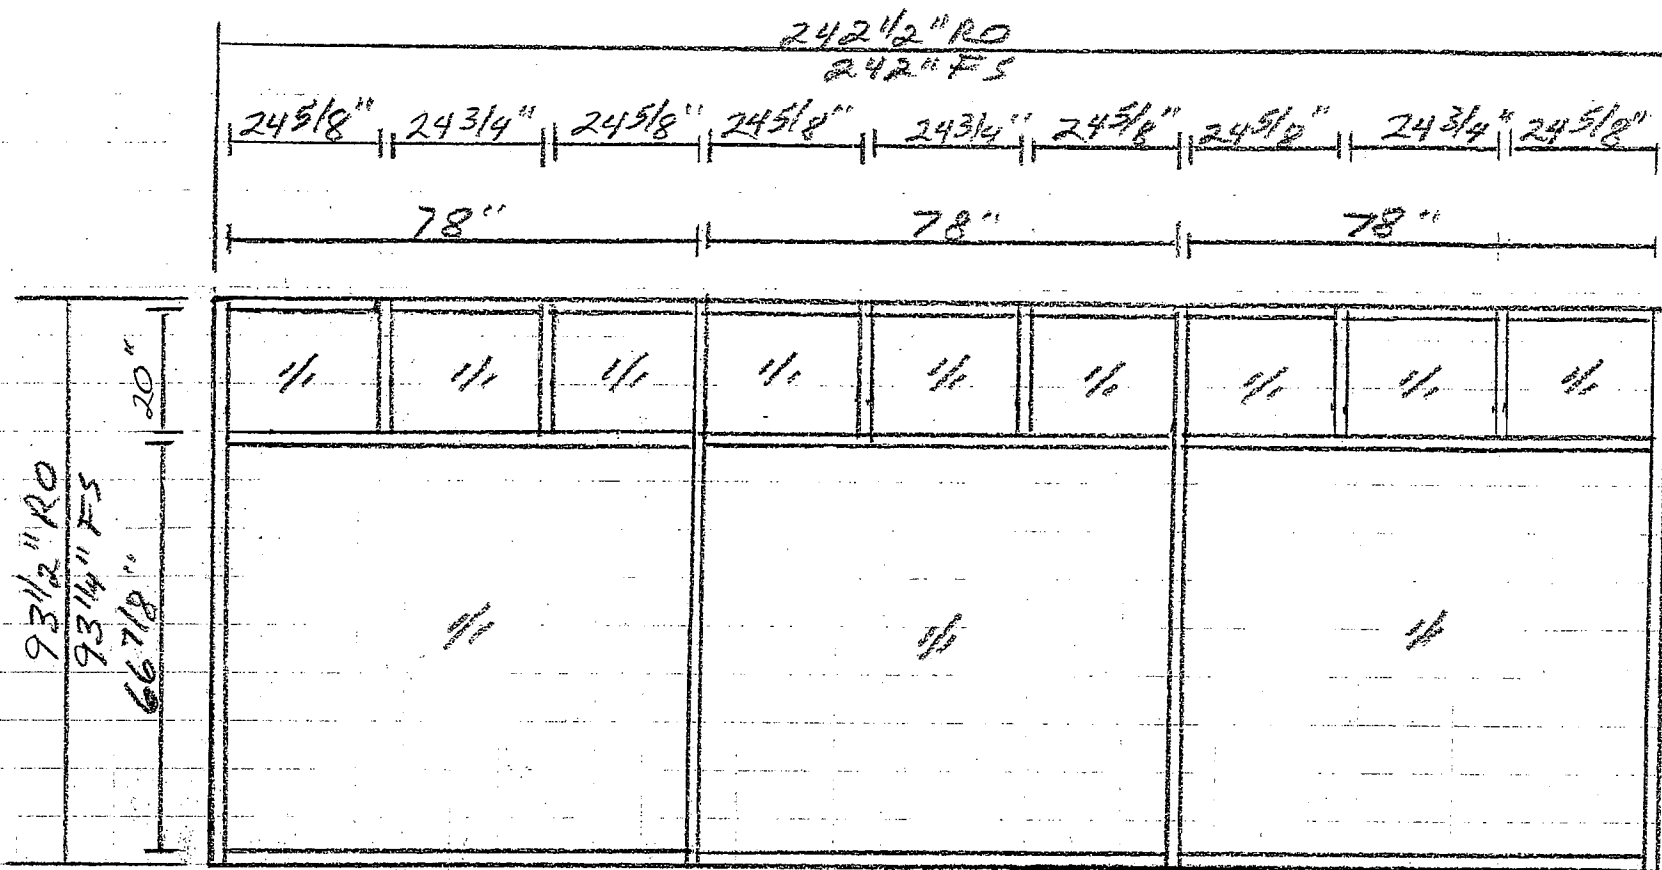 242 1/2" RO
242" FS
24 5/8" 24 3/4" 24 5/8" 24 5/8" 24 3/4" 24 5/8" 24 5/8" 24 3/4" 24 5/8"
78" 78" 78"
20"
93 1/2" RO
93 1/4" FS
66 7/8"